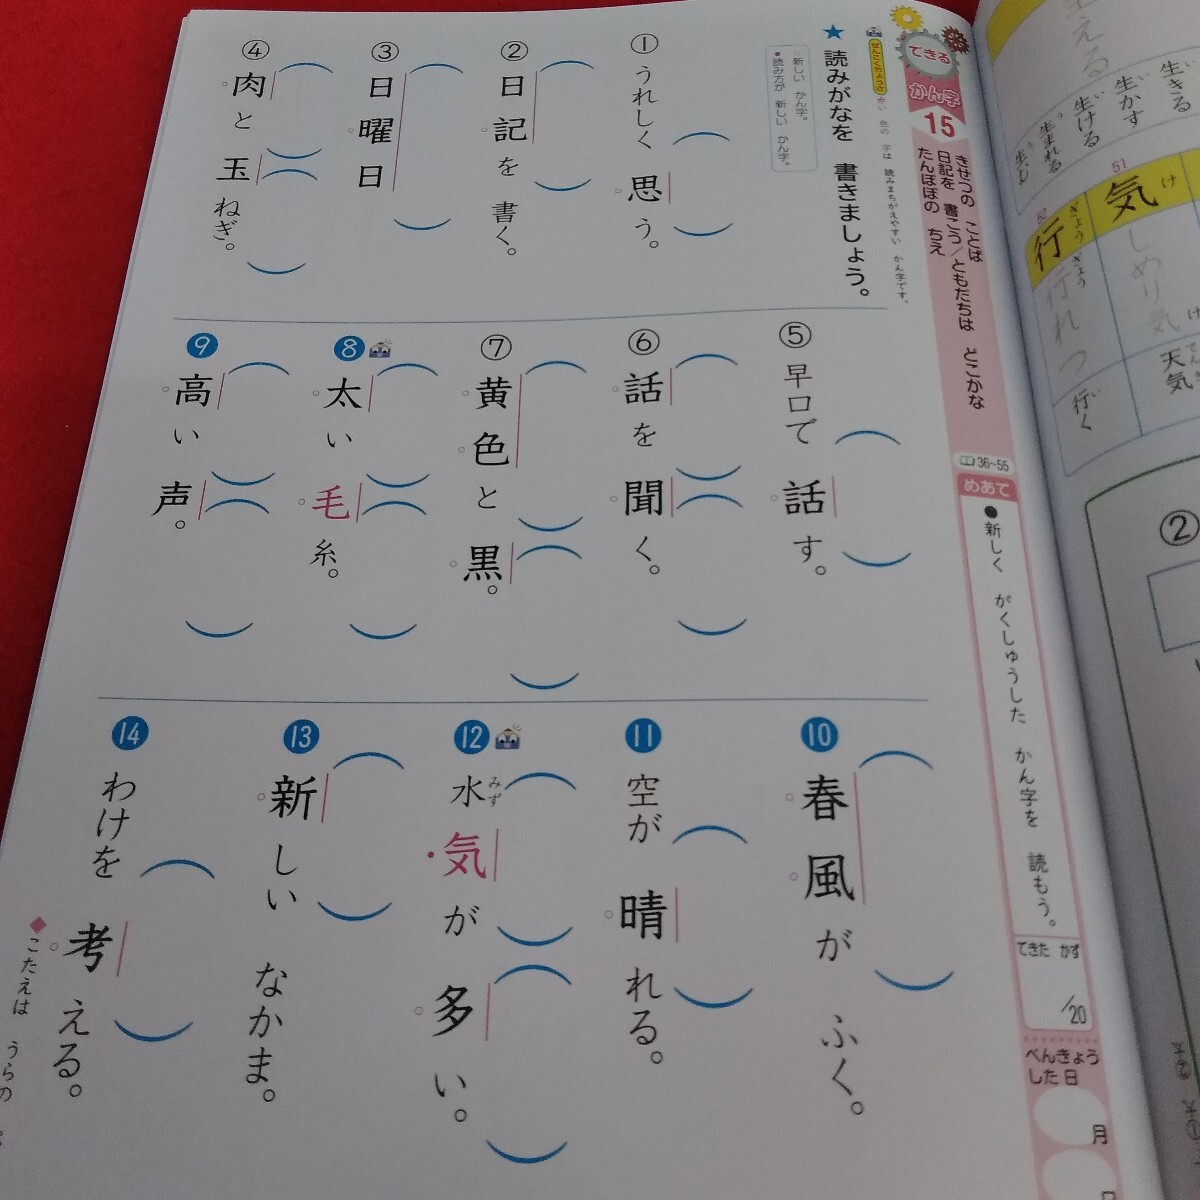 できる
かん字
15
きせつの ことば
日記を 書こう/ともだちは どこかな
たんぽぽの ちえ
36~55
めあて
●新しく がくしゅうした かん字を 読もう。
できた かず
/20
べんきょう
した日
月
ぜんこくちょうさ
赤い 色の 字は 読みまちがえやすい かん字です。
★読みがなを 書きましょう。
○新しい かん字。
●読み方が 新しい かん字。
① うれしく 思う。
② 日記を 書く。
③ 日曜日
④ 肉と 玉ねぎ。
⑤ 早口で 話す。
⑥ 話を 聞く。
⑦ 黄色と 黒。
8 太い 毛糸。
9 高い 声。
10 春風が ふく。
11 空が 晴れる。
12 水気が 多い。
みず
13 新しい なかま。
14 わけを 考える。
◆こたえは うらの
生きる
生かす
生ける
生まれる
51
気
け
しめり気
け
天気
52
行
ぎょう
行れつ
ぎょう
行く
②